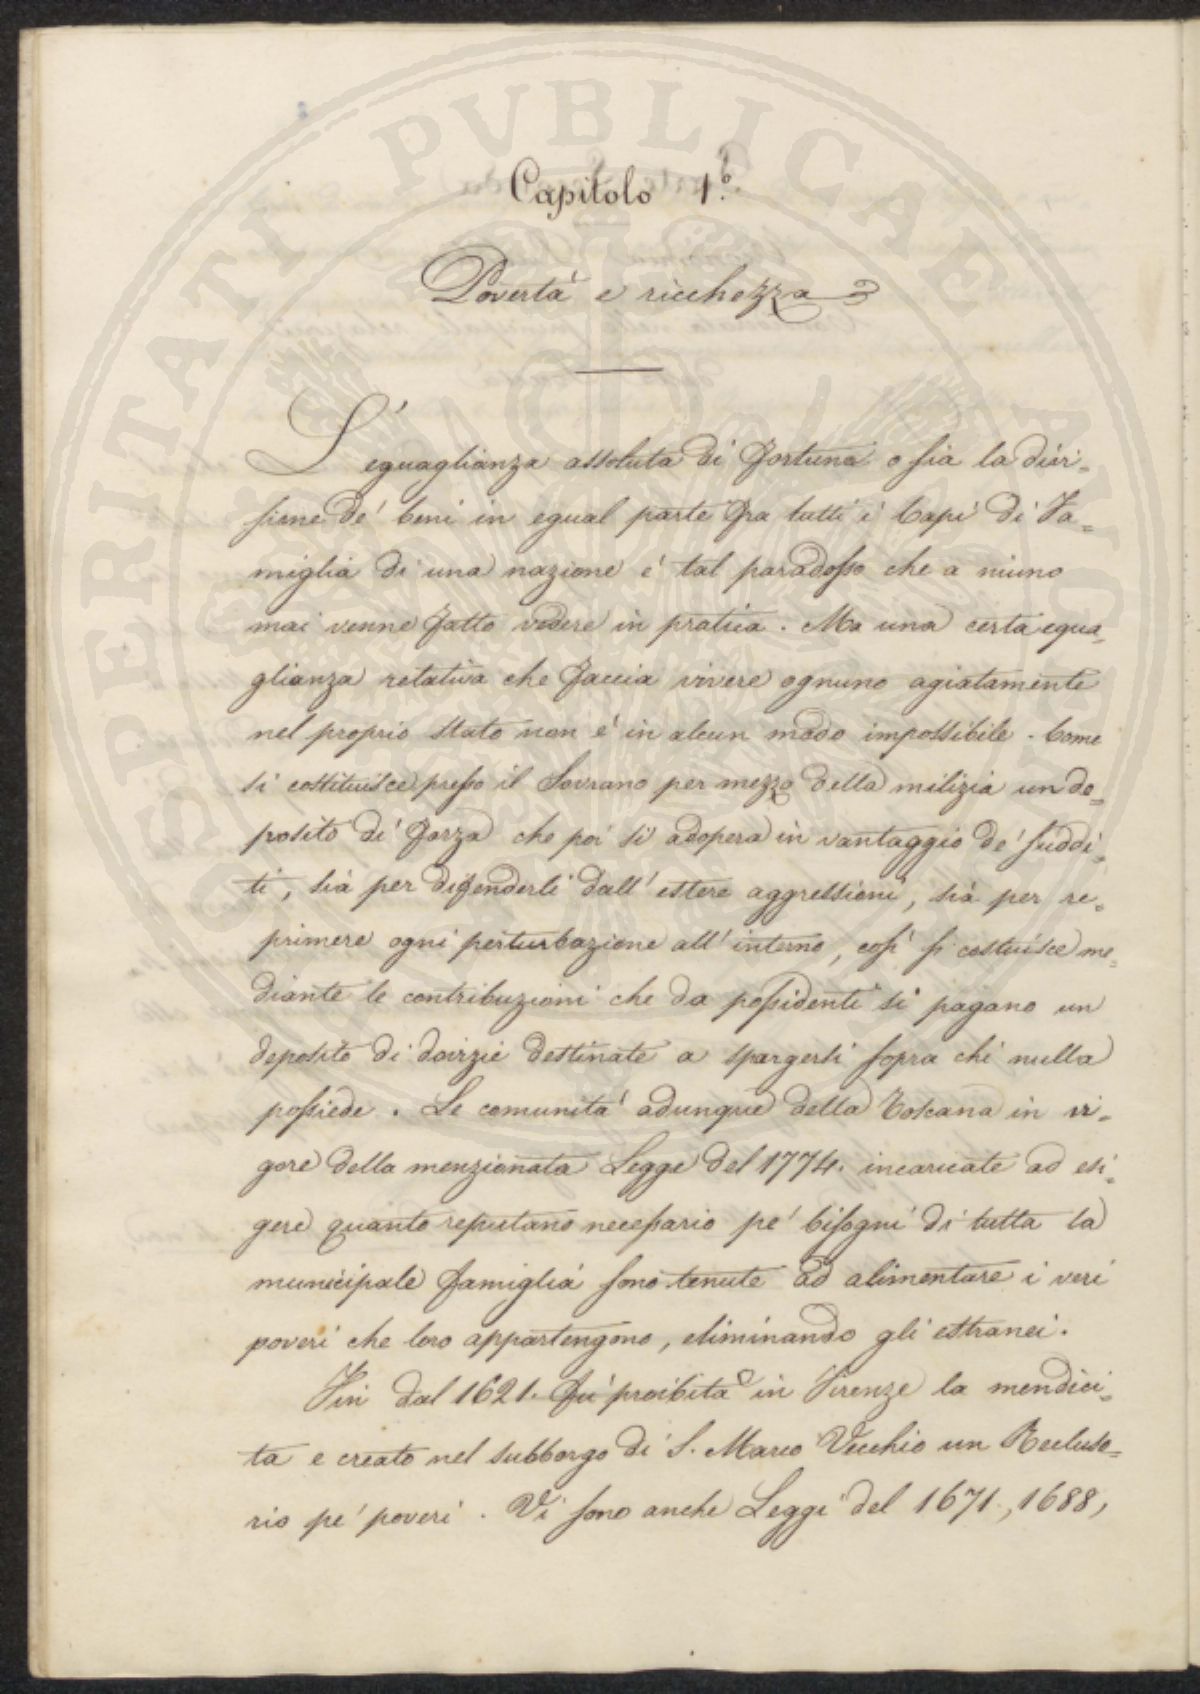 Capitolo 1.º
Povertà e ricchezza
L'eguaglianza assoluta di fortuna o sia la divi=
sione de' beni in egual parte fra tutti i Capi di Fa=
miglia di una nazione è tal paradosso che a niuno
mai venne fatto vedere in pratica. Ma una certa egua=
glianza relativa che faccia vivere ognuno agiatamente
nel proprio stato non è in alcun modo impossibile. Come
si costituisce presso il Sovrano per mezzo della milizia un do=
posito di forza che poi si adopera in vantaggio de' suddi=
ti, sia per difenderli dall'estere aggressioni, sia per re=
primere ogni perturbazione all'interno, così si costuisce me=
diante le contribuzioni che da possidenti si pagano un
deposito di dovizie destinate a spargersi sopra chi nulla
possiede. Le comunità adunque della Toscana in vi=
gore della menzionata Legge del 1774. incaricate ad esi=
gere quanto reputano necessario pe' bisogni di tutta la
municipale famiglia sono tenute ad alimentare i veri
poveri che loro appartengono, eliminando gli estranei.
Fin dal 1621. fu proibita in Firenze la mendici=
tà e creato nel subborgo di S. Marco Vecchio un Recluso=
rio pe' poveri. Vi sono anche Leggi del 1671., 1688,
SPERITATI PVBLICAE